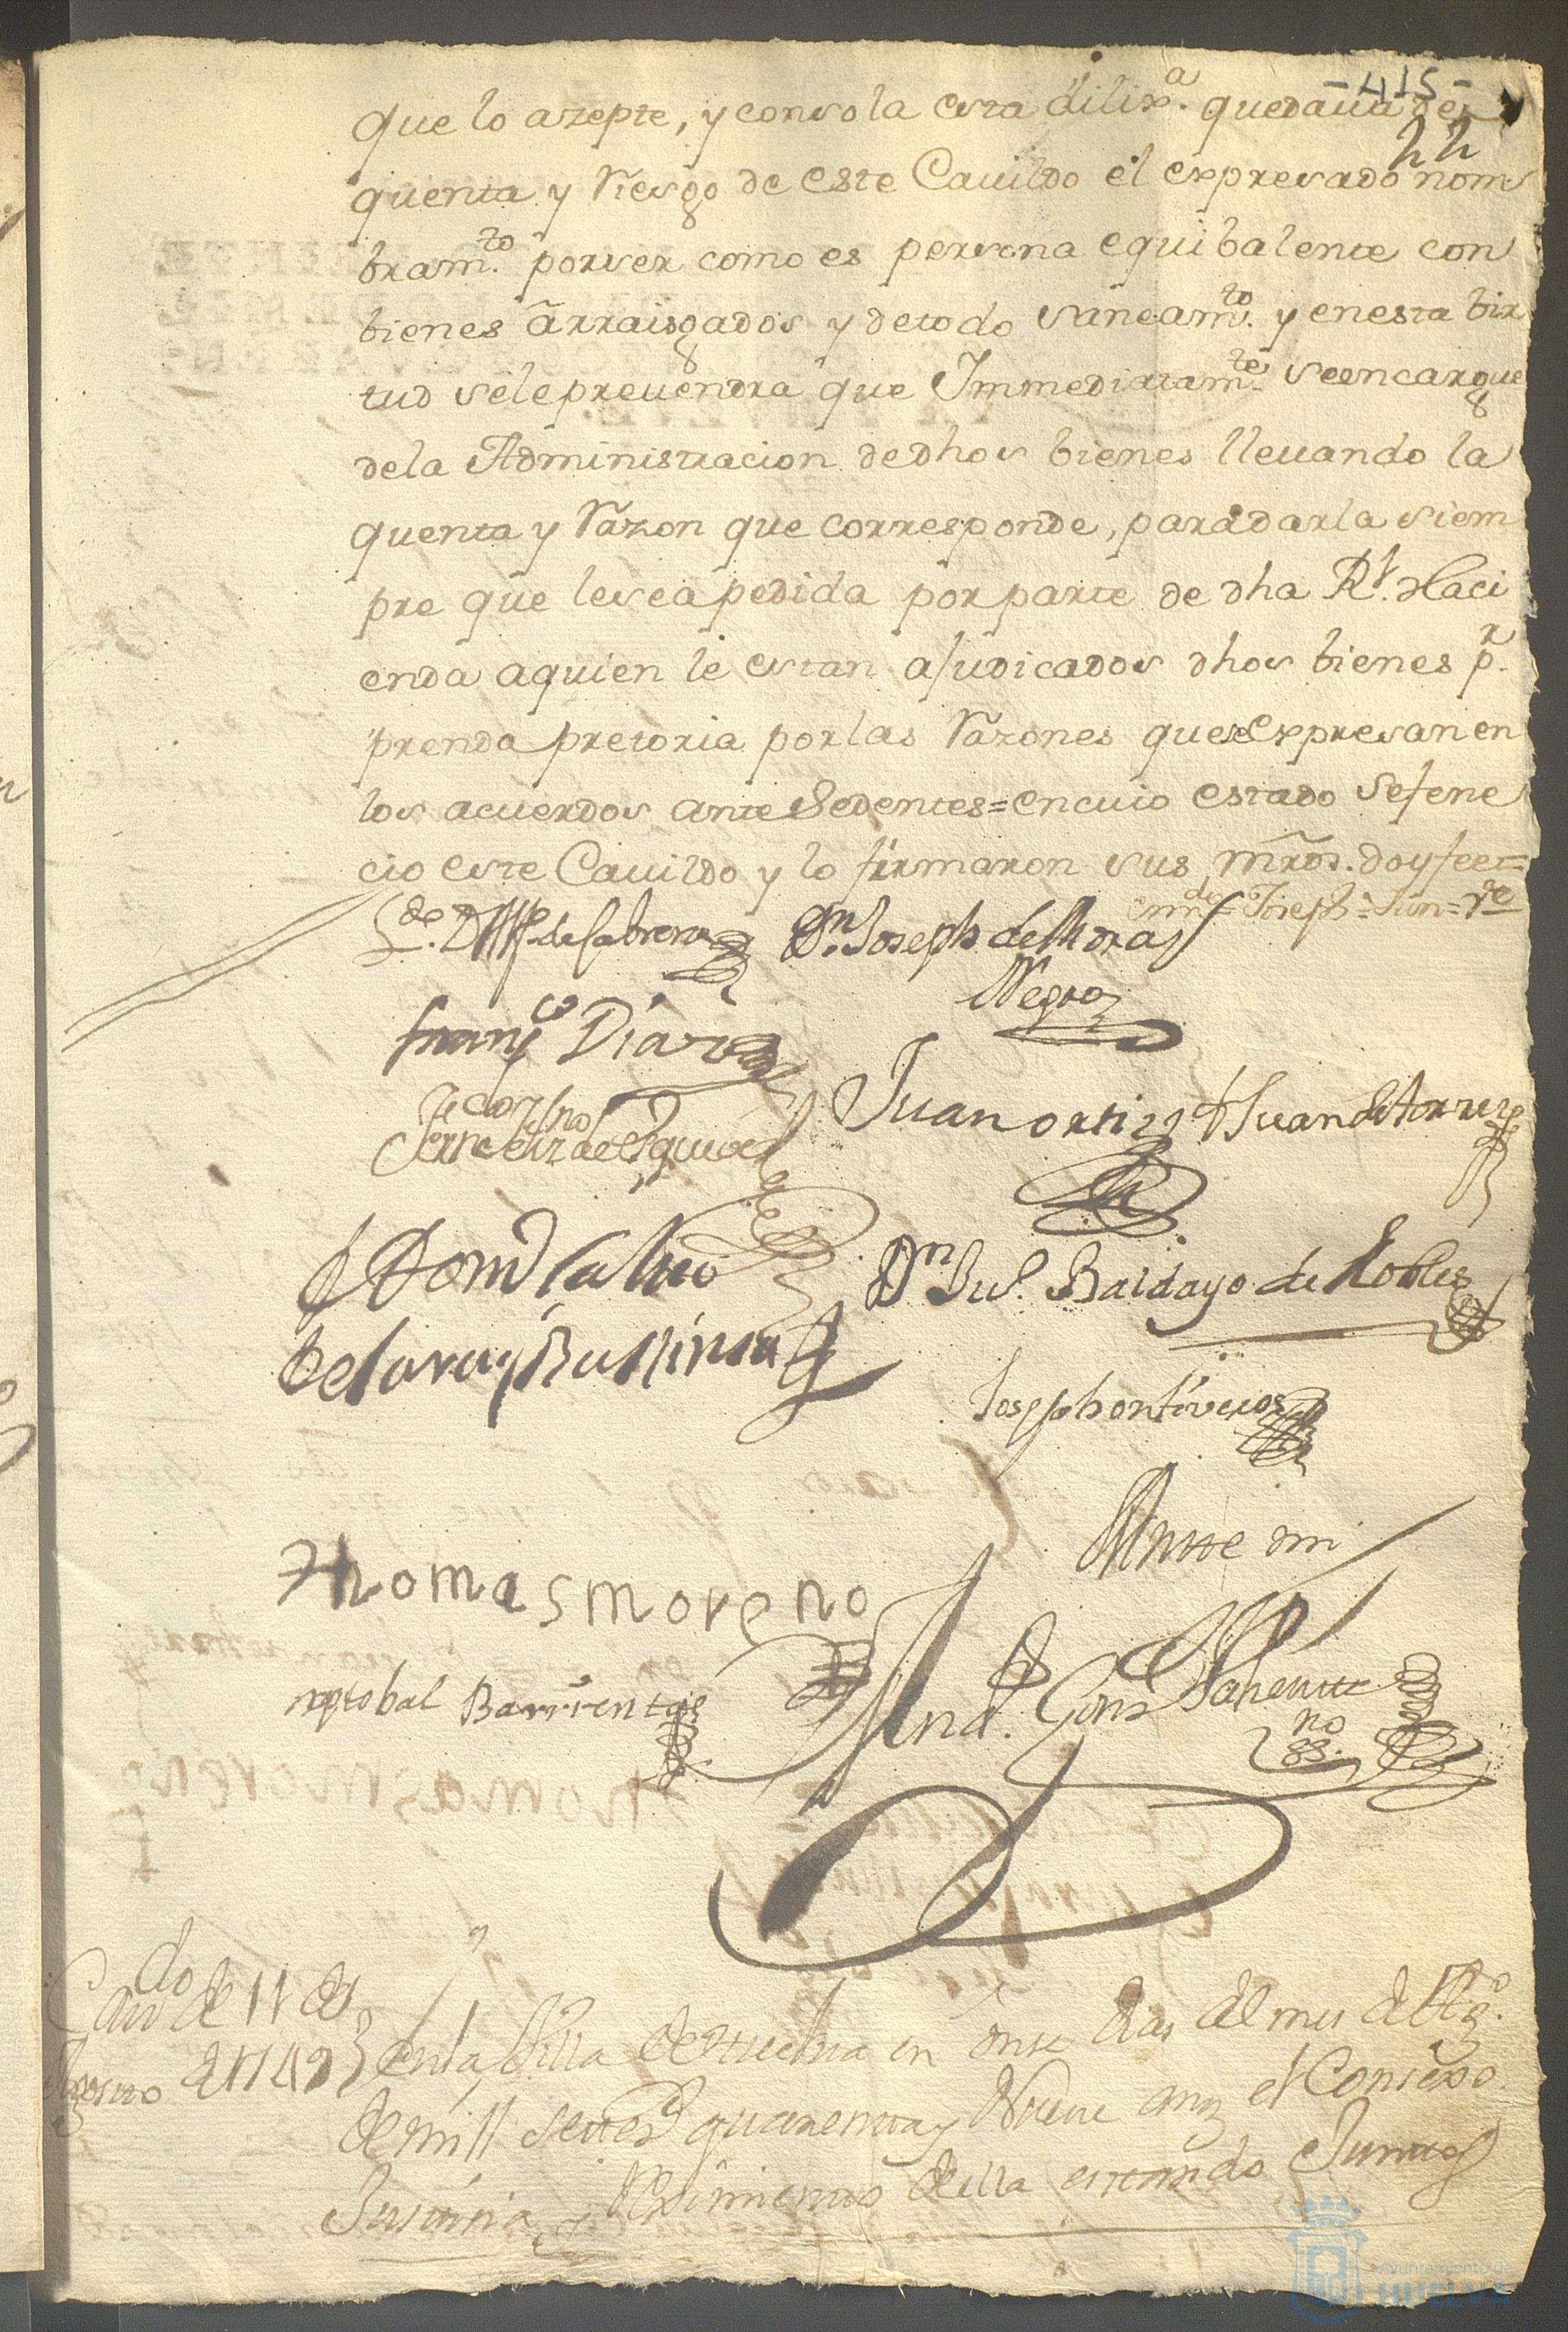 -415-
que lo azepte, y con sola esta dilixª. quedava de
quenta y riesgo de este Cavildo el expresado nom
bramto. por ser como es persona equibalente con
bienes arraisgados y de todo saneamto. y en esta bir
tud se le prevendra que Immediatamte. se encargue
de la Administracion de dhos bienes llevando la
quenta y razon que corresponde, para darla siem
pre que le sea pedida por parte de dha Rl. Haci
enda a quien le estan ajudicados dhos bienes pr.
prenda pretoria por las razones que se expresan en
los acuerdos antesedentes = en cuio estado se fene
cio este Cavildo y lo firmaron sus mrds. doy fee =
enmdo = Joseph =
Ldo. de Cabrera
Dn. Joseph de Mora
Negro
Franco Diaz
Juan ortiz
Juan de torres
Domo Calvo
Dn Juo. Baldayo de Robles
Joseph ontiveros
Antte mi
Thomas moreno
xptobal Barrientos
Cavdo de 11 de
Agosto de 1749
en la Villa de Huelva en onse dias del mes de Agto.
de mill setezs quarenta y Nueve años el Consexo
Justicia y Reximiento de ella estando Juntos
Ayuntamiento de
HUELVA